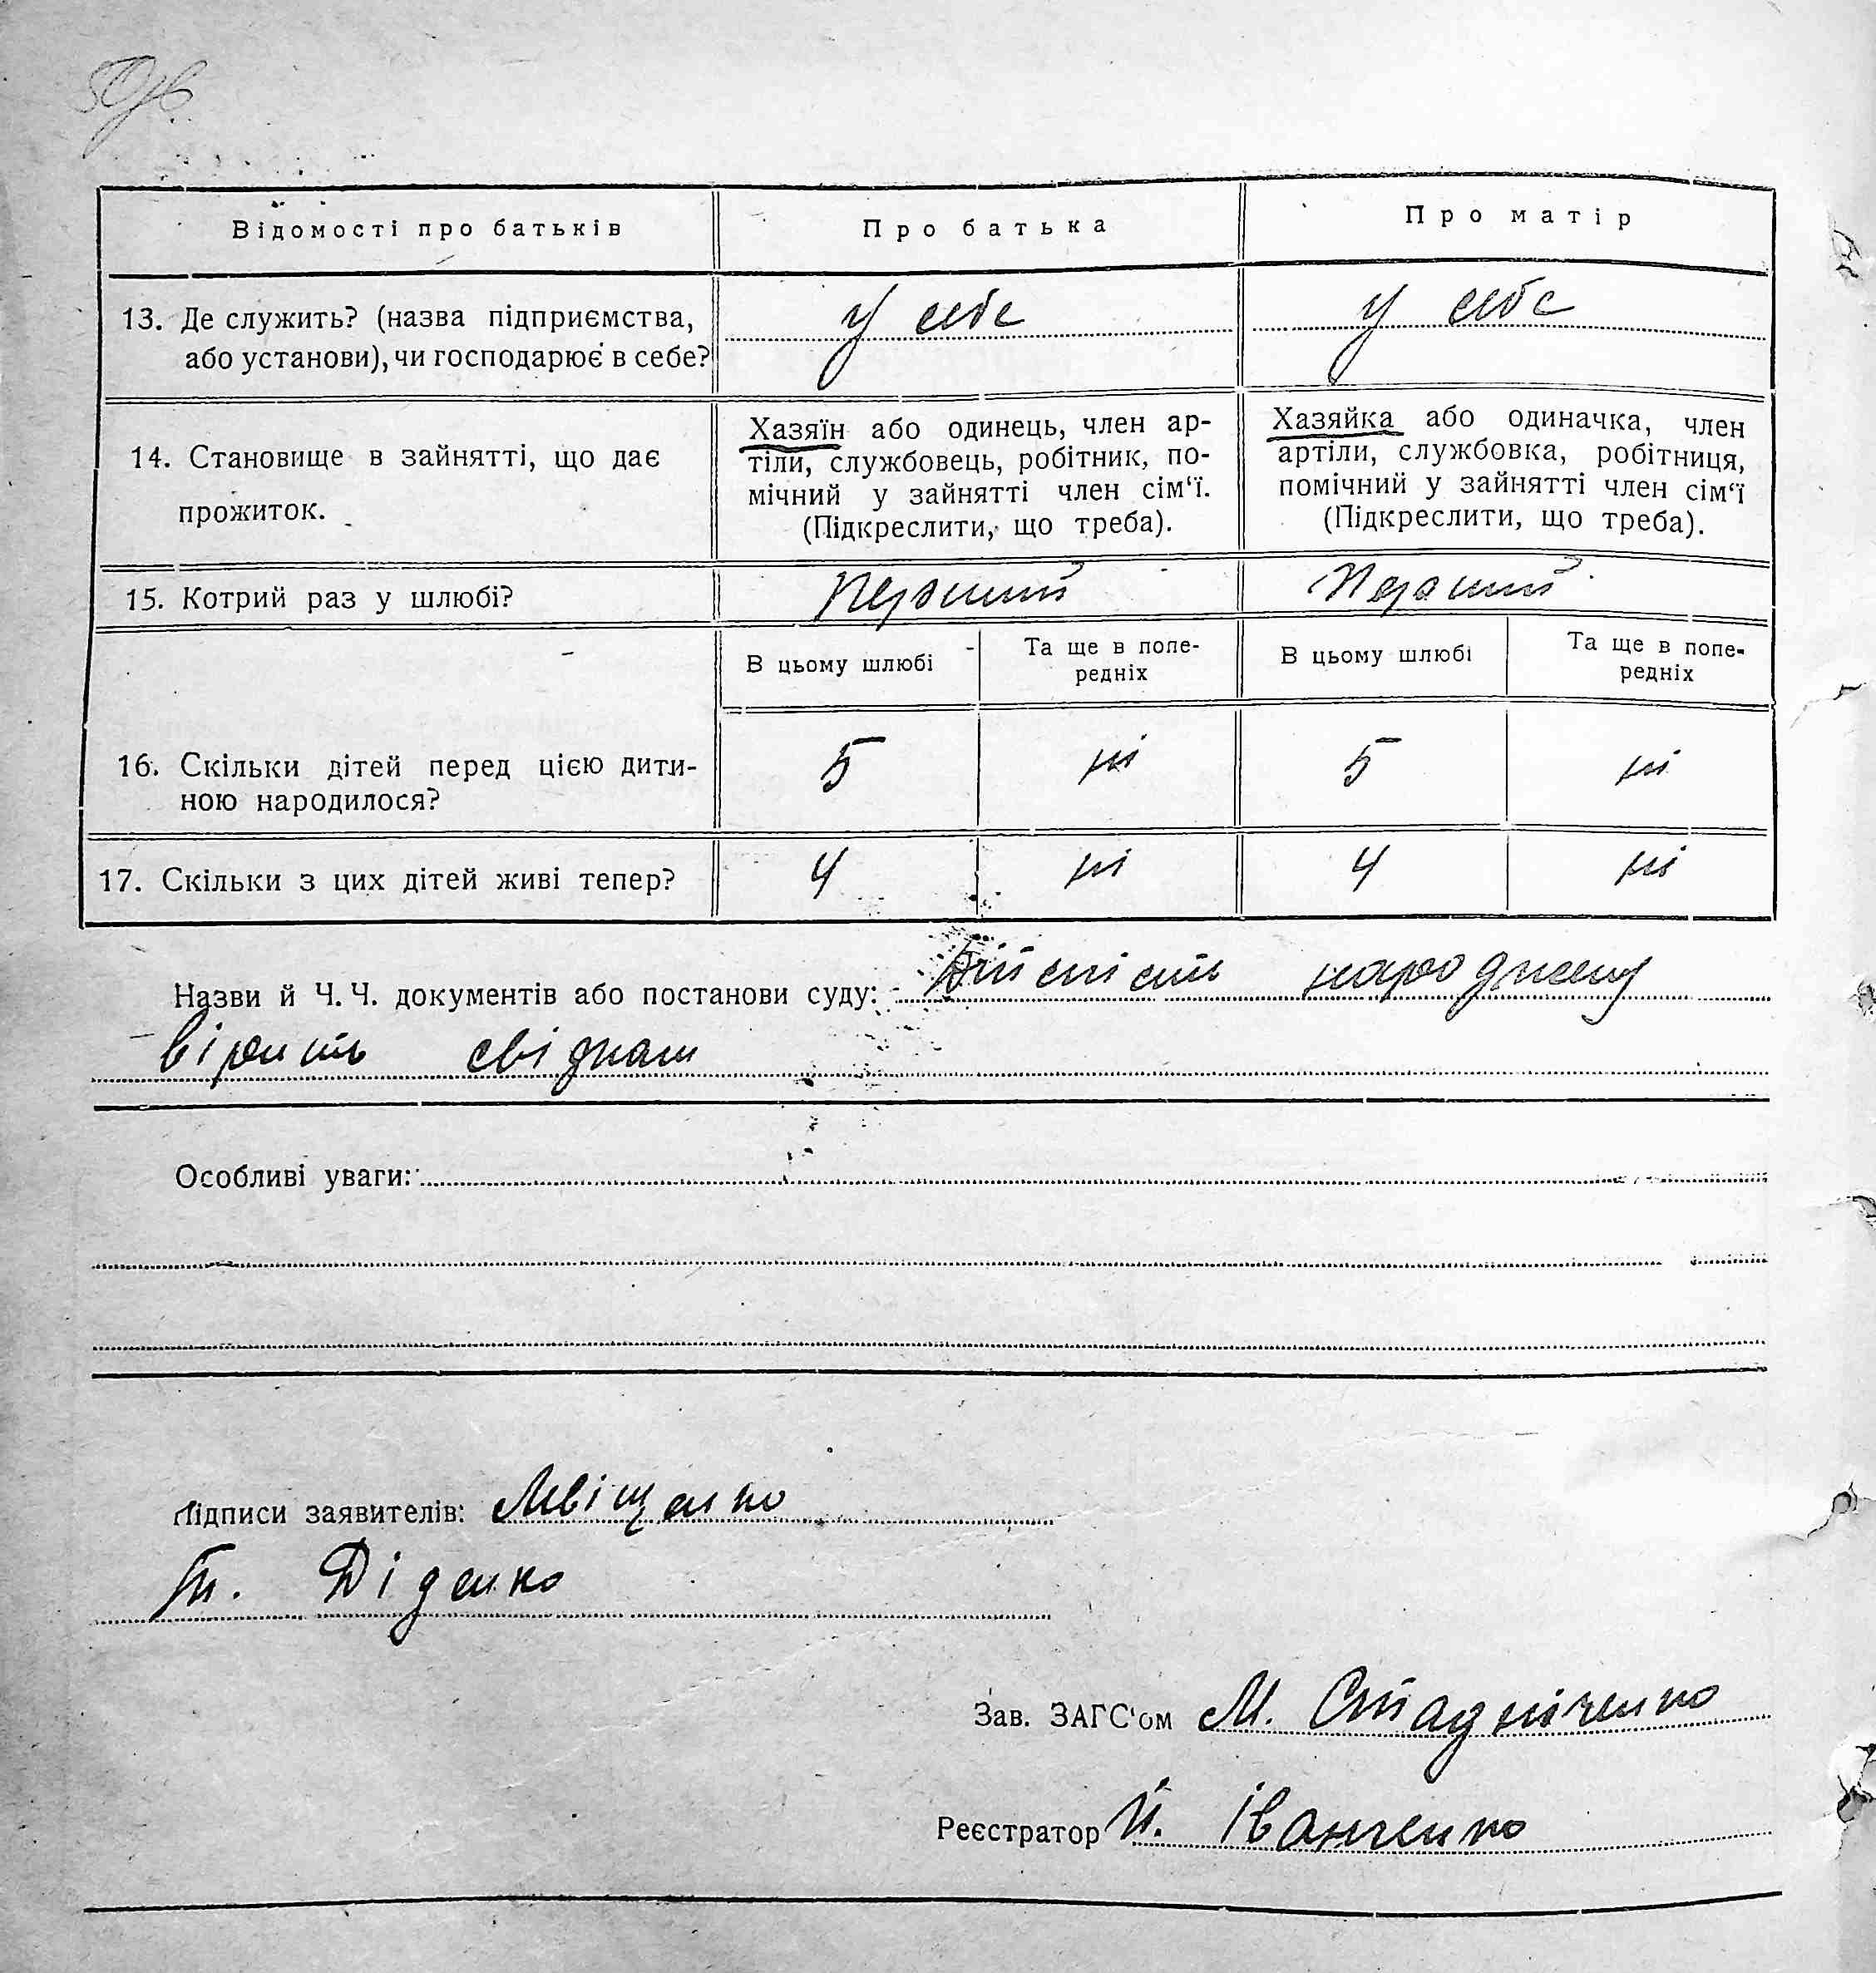 Відомості про батьків
Про батька
Про матір
13. Де служить? (назва підприємства,
або установи), чи господарює в себе?
у себе
у себе
14. Становище в зайнятті, що дає
прожиток.
Хазяїн або одинець, член ар-
тіли, службовець, робітник, по-
мічний у зайнятті член сім‘ї.
(Підкреслити, що треба).
Хазяйка або одиначка, член
артіли, службовка, робітниця,
помічний у зайнятті член сім‘ї
(Підкреслити, що треба).
15. Котрий раз у шлюбі?
Перший
Перший
В цьому шлюбі
Та ще в попе-
редніх
В цьому шлюбі
Та ще в попе-
редніх
16. Скільки дітей перед цією дити-
ною народилося?
5
ні
5
ні
17. Скільки з цих дітей живі тепер?
4
ні
4
ні
Назви й Ч. Ч. документів або постанови суду: Дійсність народженн
вірить свідкам
Особливі уваги:
Підписи заявителів:
Діденко
Зав. ЗАГС‘ом М. Стадніченко
Реєстратор Й. Іванченко